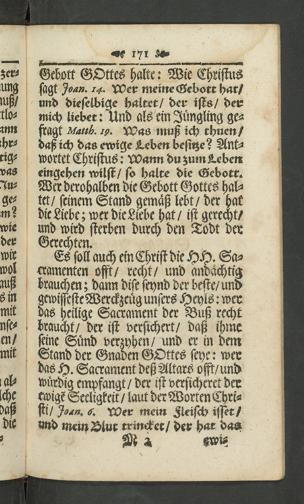 171
Gebott GOttes halte: Wie Christus
sagt Joan. 14. Wer meine Gebott hat/
und dieselbige haltet/ der ists/ der
mich liebet: Und als ein Jüngling ge-
fragt Math. 19. Was muß ich thuen/
daß ich das ewige Leben besitze? Ant-
wortet Christus: Wann du zum Leben
eingehen wilst/ so halte die Gebott.
Wer derohalben die Gebott Gottes hal-
tet/ seinem Stand gemäß lebt/ der hat
die Liebe; wer die Liebe hat/ ist gerecht/
und wird sterben durch den Todt der
Gerechten.
Es soll auch ein Christ die HH. Sa-
cramenten offt/ recht/ und andächtig
brauchen; dann dise seynd der beste/ und
gewisseste Werckzeug unsers Heyls: wer
das heilige Sacrament der Buß recht
braucht/ der ist versichert/ daß ihme
seine Sünd verzyhen/ und er in dem
Stand der Gnaden GOttes seye: wer
das H. Sacrament deß Altars offt/ und
würdig empfangt/ der ist versicheret der
ewigē Seeligkeit/ laut der Worten Chri-
sti/ Joan. 6. Wer mein Fleisch isset/
und mein Blut trincket/ der hat das
M 2 ewi-